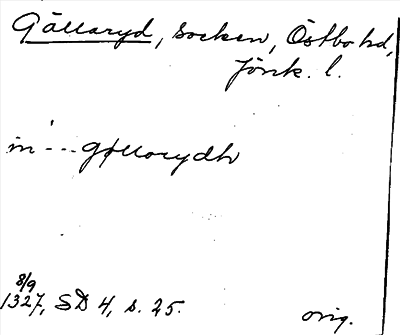 Gällaryd, socken, Östbo hd,
Jönk. l.
in --- gøllorydh
8/9
1327, SD 4, s. 25.
orig.